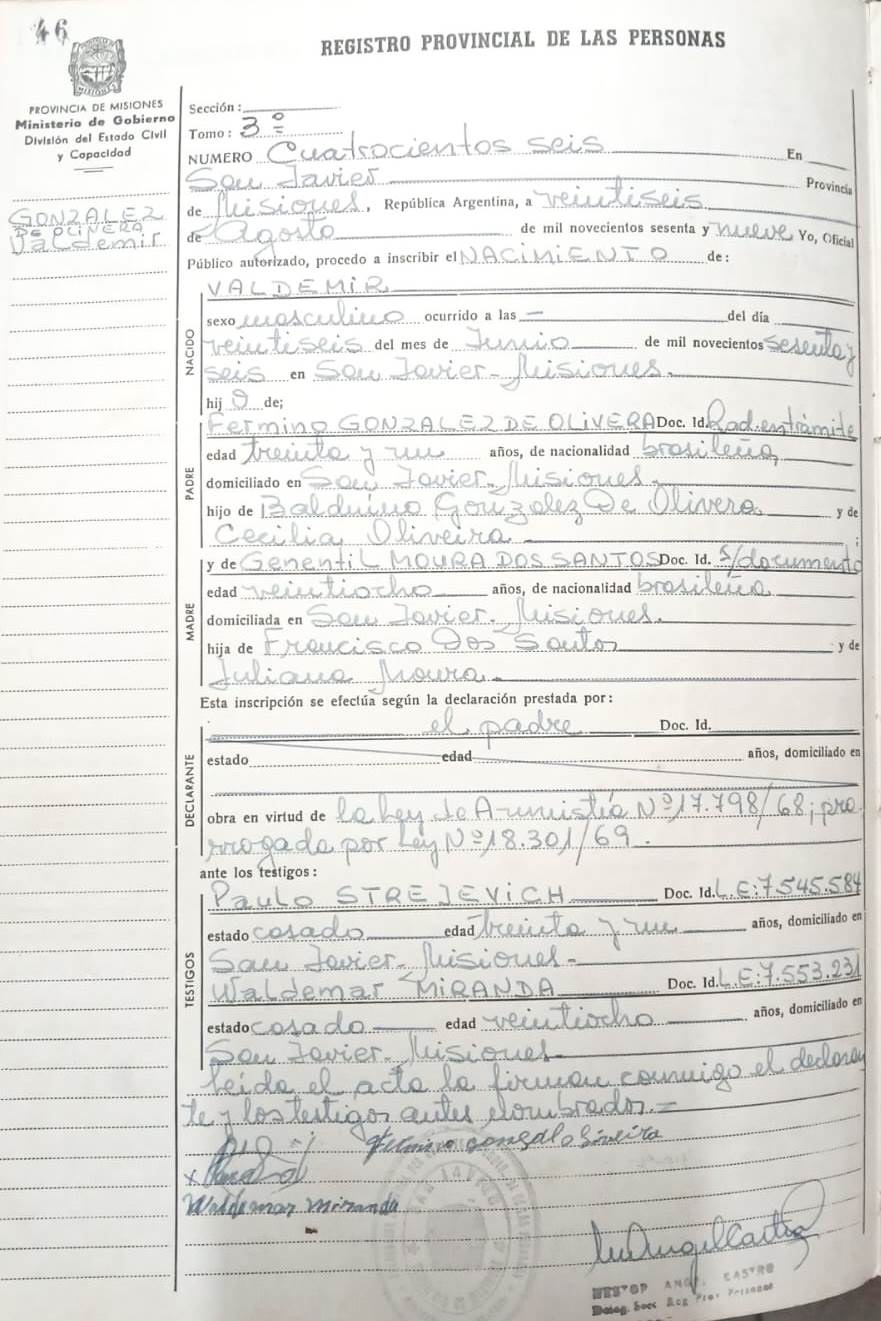 46
REGISTRO PROVINCIAL DE LAS PERSONAS
PROVINCIA DE MISIONES
Ministerio de Gobierno
División del Estado Civil
y Capacidad
GONZALEZ
DE OLIVERA
Valdemir
Sección:
Tomo: 3º
NUMERO Cuatrocientos seis En
San Javier Provincia
de Misiones, República Argentina, a veintiseis
de Agosto de mil novecientos sesenta y nueve Yo, Oficial
Público autorizado, procedo a inscribir el NACIMIENTO de:
NACIDO
VALDEMIR
sexo masculino ocurrido a las — del día
veintiseis del mes de Junio de mil novecientos sesenta y
seis en San Javier - Misiones.
hij o de;
PADRE
Fermino GONZALEZ DE OLIVERA Doc. Id. Rad. en trámite
edad treinta y un años, de nacionalidad brasileña
domiciliado en San Javier. Misiones.
hijo de Balduino Gonzalez De Olivera y de
Cecilia Oliveira ;
MADRE
y de Genentil MOURA DOS SANTOS Doc. Id. S/documento
edad veintiocho años, de nacionalidad brasileña
domiciliada en San Javier. Misiones.
hija de Francisco Dos Santos y de
Juliana Moura.
Esta inscripción se efectúa según la declaración prestada por:
DECLARANTE
el padre Doc. Id.
estado edad años, domiciliado en
obra en virtud de la Ley de Amnistía Nº 17.798/68; pro
rrogada por Ley Nº 18.301/69.
ante los testigos:
TESTIGOS
Paulo STREJEVICH Doc. Id. L.E: 7.545.584
estado casado edad treinta y un años, domiciliado en
San Javier. Misiones.
Waldemar MIRANDA Doc. Id. L.E: 7.553.231
estado casado edad veintiocho años, domiciliado en
San Javier. Misiones
leída el acta la firman conmigo el declaran
te y los testigos antes nombrados.=
Waldemar Miranda
CASTRO